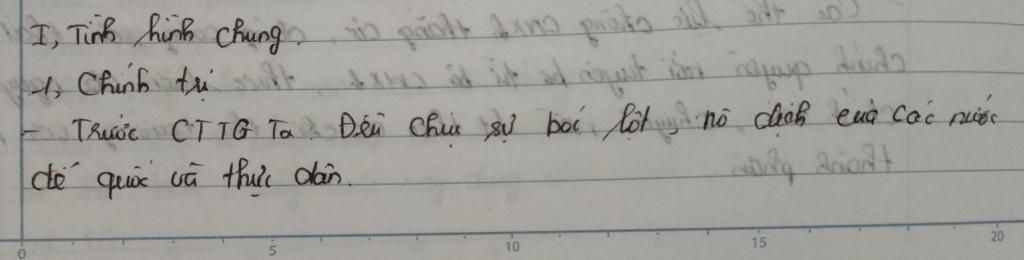 I, Tình hình chung.
1, Chính trị
- Trước CTTG Ta Đều chịu sự bóc lột, nô dịch của các nước
đế quốc và thực dân.
0 5 10 15 20